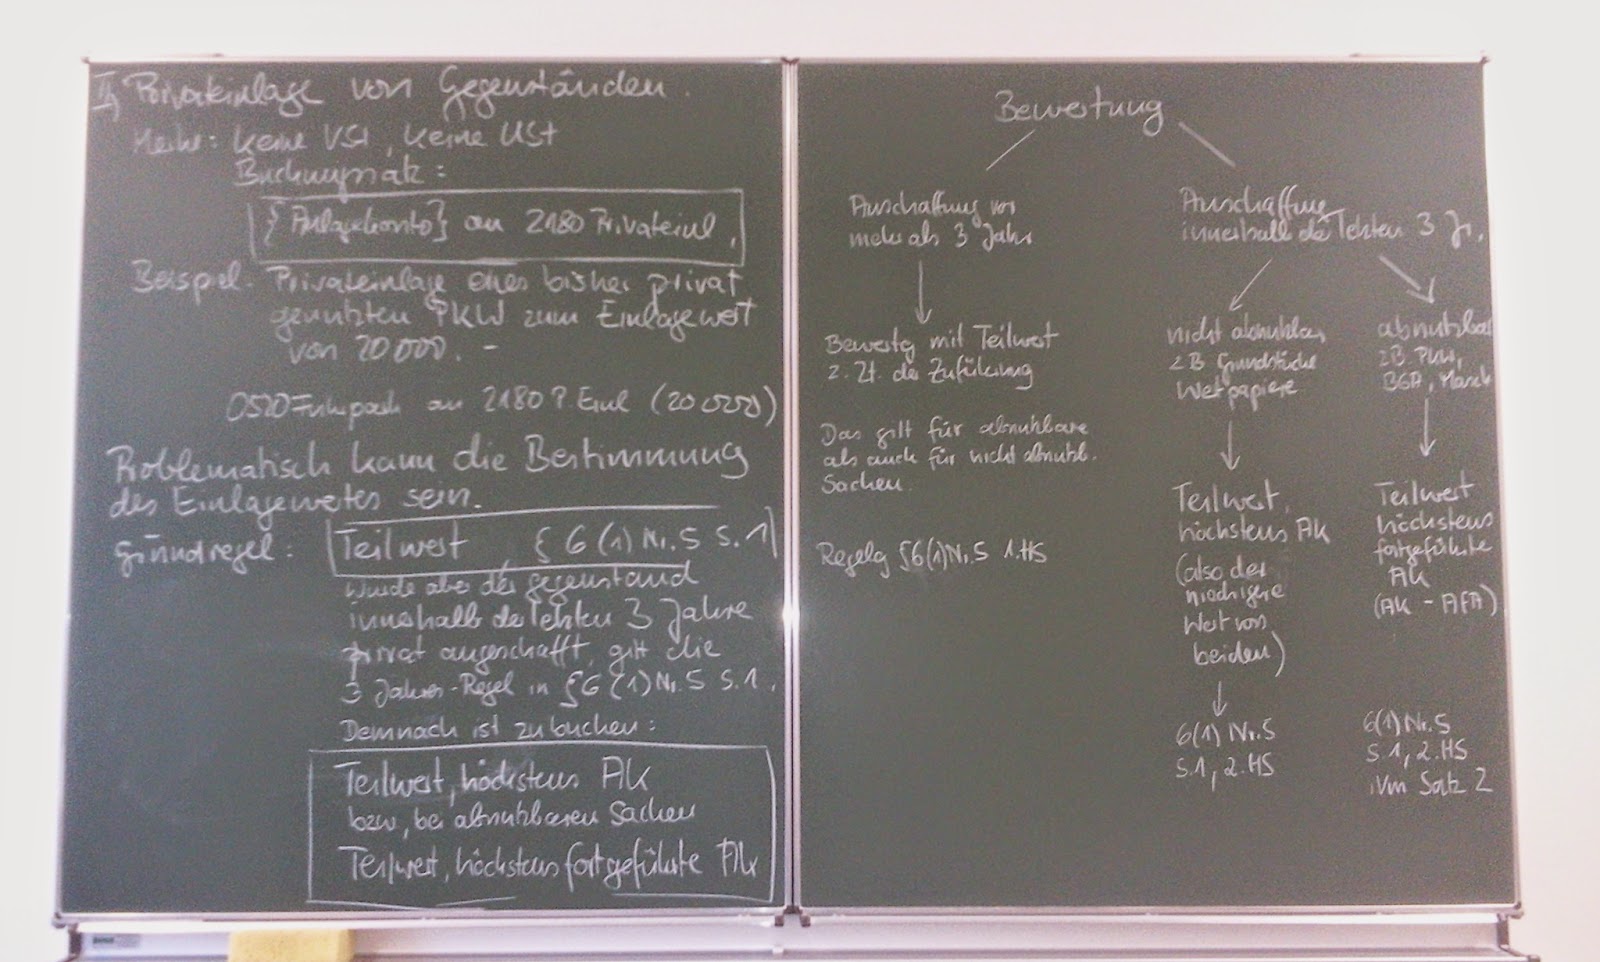 II, Privateinlage von Gegenständen.
Merke: keine VSt, keine USt
Buchungssatz:
{Anlagekonto} an 2180 Privateinl.
Beispiel. Privateinlage eines bisher privat
genutzten PKW zum Einlagewert
von 20 000. -
0520 Fuhrpark an 2180 P. Einl (20 000)
Problematisch kann die Bestimmung
des Einlagewertes sein.
Grundregel: Teilwert § 6 (1) Nr. 5 S. 1
wurde aber der Gegenstand
innerhalb der letzten 3 Jahre
privat angeschafft, gilt die
3 Jahres-Regel in § 6 (1) Nr. 5 S. 1.
Demnach ist zu buchen:
Teilwert, höchstens AK
bzw, bei abnutzbaren Sachen
Teilwert, höchstens fortgeführte AK
Bewertung
Anschaffung vor
mehr als 3 Jahr
Bewertg mit Teilwert
z. Zt. der Zuführung
Das gilt für abnutzbare
als auch für nicht abnutzb.
Sachen.
Regelg § 6(1) Nr. 5 1. HS
Anschaffung
innerhalb der letzten 3 Jr.
nicht abnutzbar
z B Grundstücke
Wertpapiere
Teilwert,
höchstens AK
(also der
niedrigere
Wert von
beiden)
6(1) Nr. 5
S. 1, 2. HS
abnutzbar
z B. PKW,
BGA, Masch
Teilwert
höchstens
fortgeführte
AK
(AK - AFA)
6(1) Nr. 5
S. 1, 2. HS
iVm Satz 2